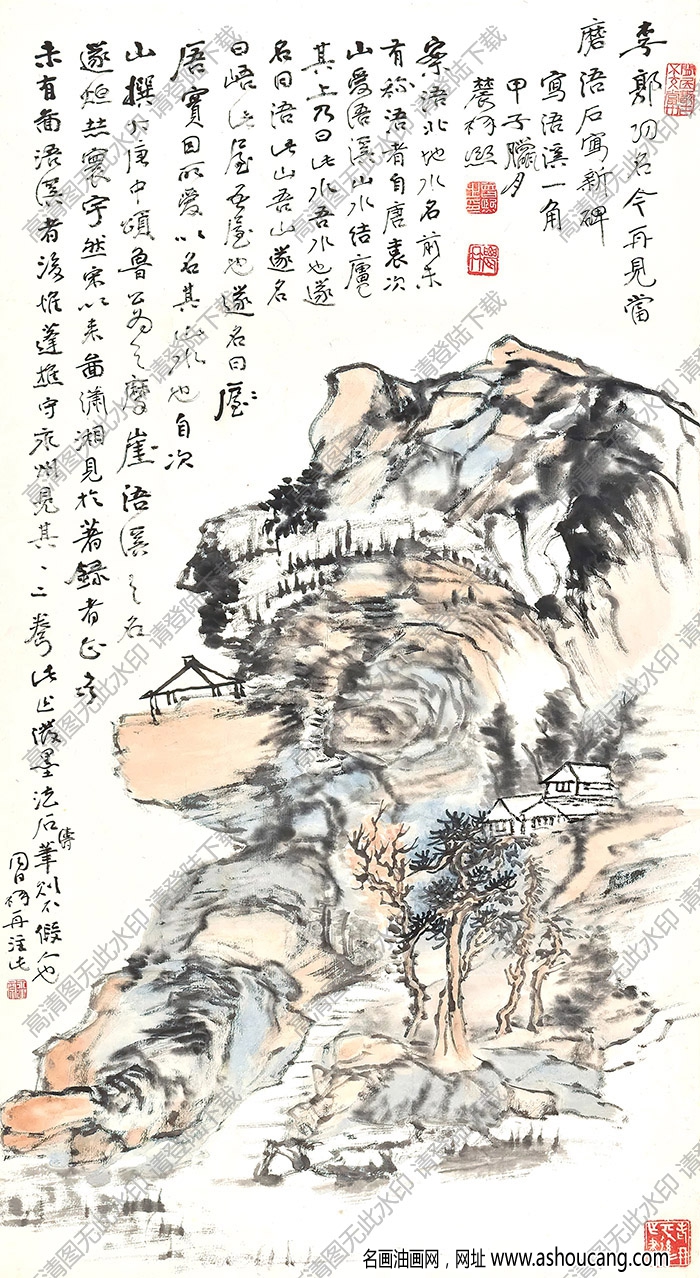 李郭功名今再見當
磨浯石寫新碑
寫浯溪一角
甲子臘月
農髯熙
案浯北地水名前未
有稱浯者自唐袁次
山愛浯溪山水結廬
其上乃曰此水吾水也遂
名曰浯此山吾山遂名
曰峿此屋吾屋也遂名曰
實因所愛以名其山水也自次
山撰大唐中頌魯公為之磨崖浯溪之名
遂烜赫寰宇然宋以來畫瀟湘見於著錄者正多
未有畫浯溪者後惟蓬樵守永州見其一二卷此上墨法石筆則不假人也
髯再注此
高清图无此水印 请登陆下载
名画油画网，网址 www.ashoucang.com